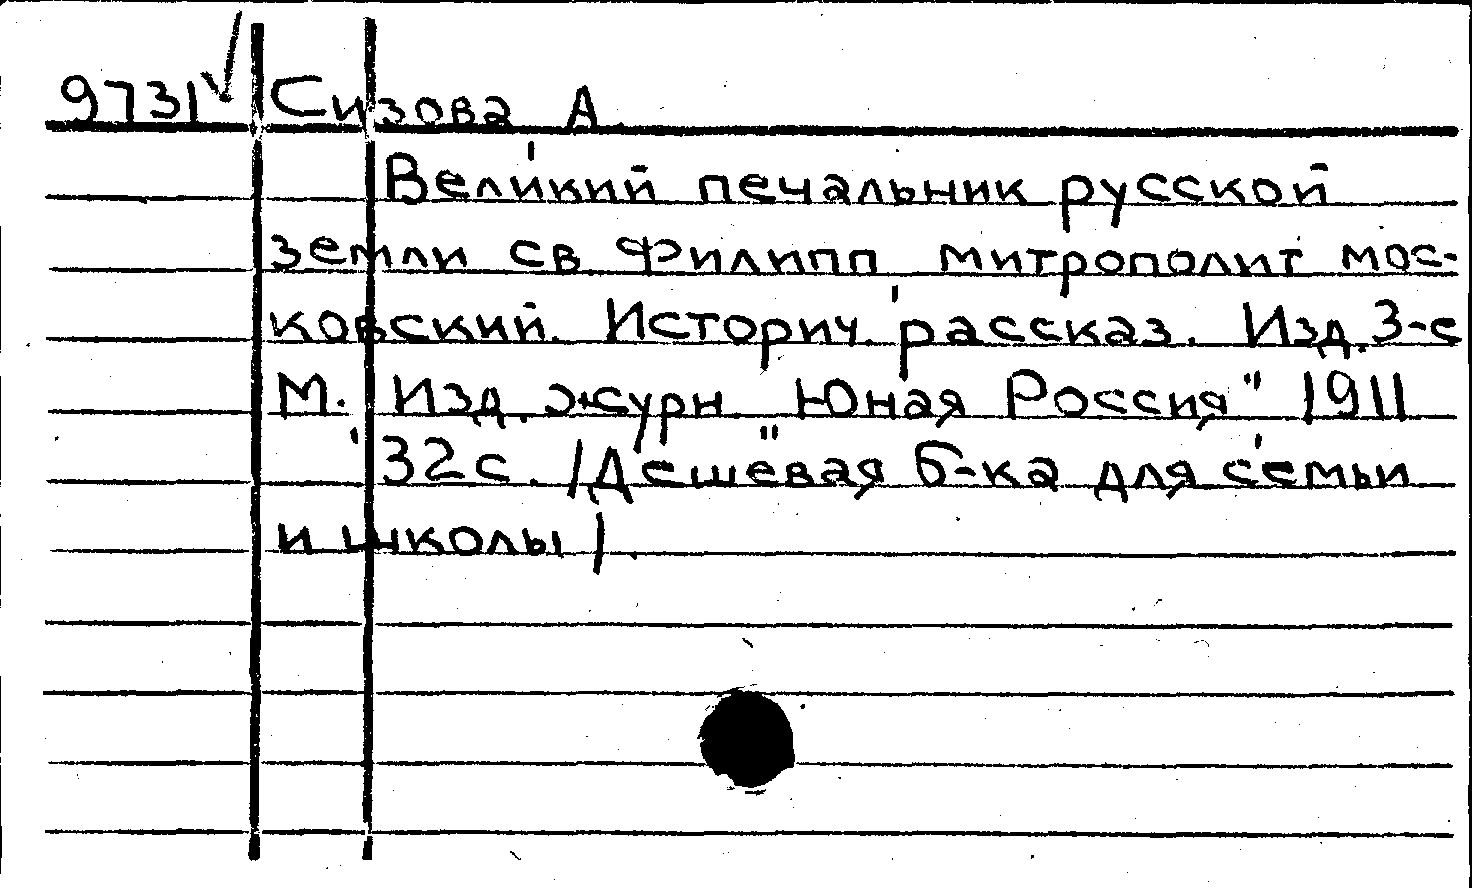 9731 Сизова А.
Великий печальник русской
земли св. Филипп митрополит мос-
ковский. Историч. рассказ. Изд. 3-е
М. Изд. журн. "Юная Россия" 1911
32 с. /Дешёвая б-ка для семьи
и школы/.